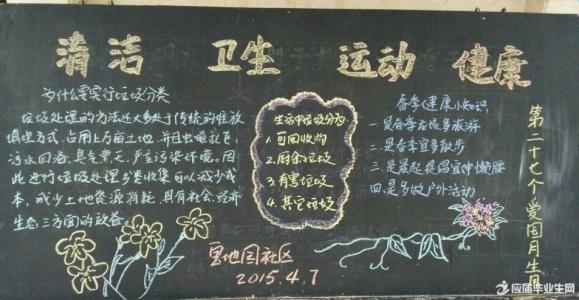 清洁 卫生 运动 健康
为什么要实行垃圾分类
垃圾处理的方法还大多处于传统的堆放
填埋方式,占用上万亩土地,并且虫蝇乱飞,
污水四溢,臭气熏天,严重污染环境。因
此进行垃圾处理分类收集可以减少成
本,减少土地资源消耗,具有社会、经济
生态三方面的效益。
生活中垃圾分为
1.可回收物
2.厨余垃圾
3.有害垃圾
4.其它垃圾
春季健康小知识
一.是春季应该多旅游
二.是春季宜多散步
三.是晨起提倡宜伸懒腰
四.是多做户外活动
第二十七个爱国月生日
2015.4.7
应届毕业生网